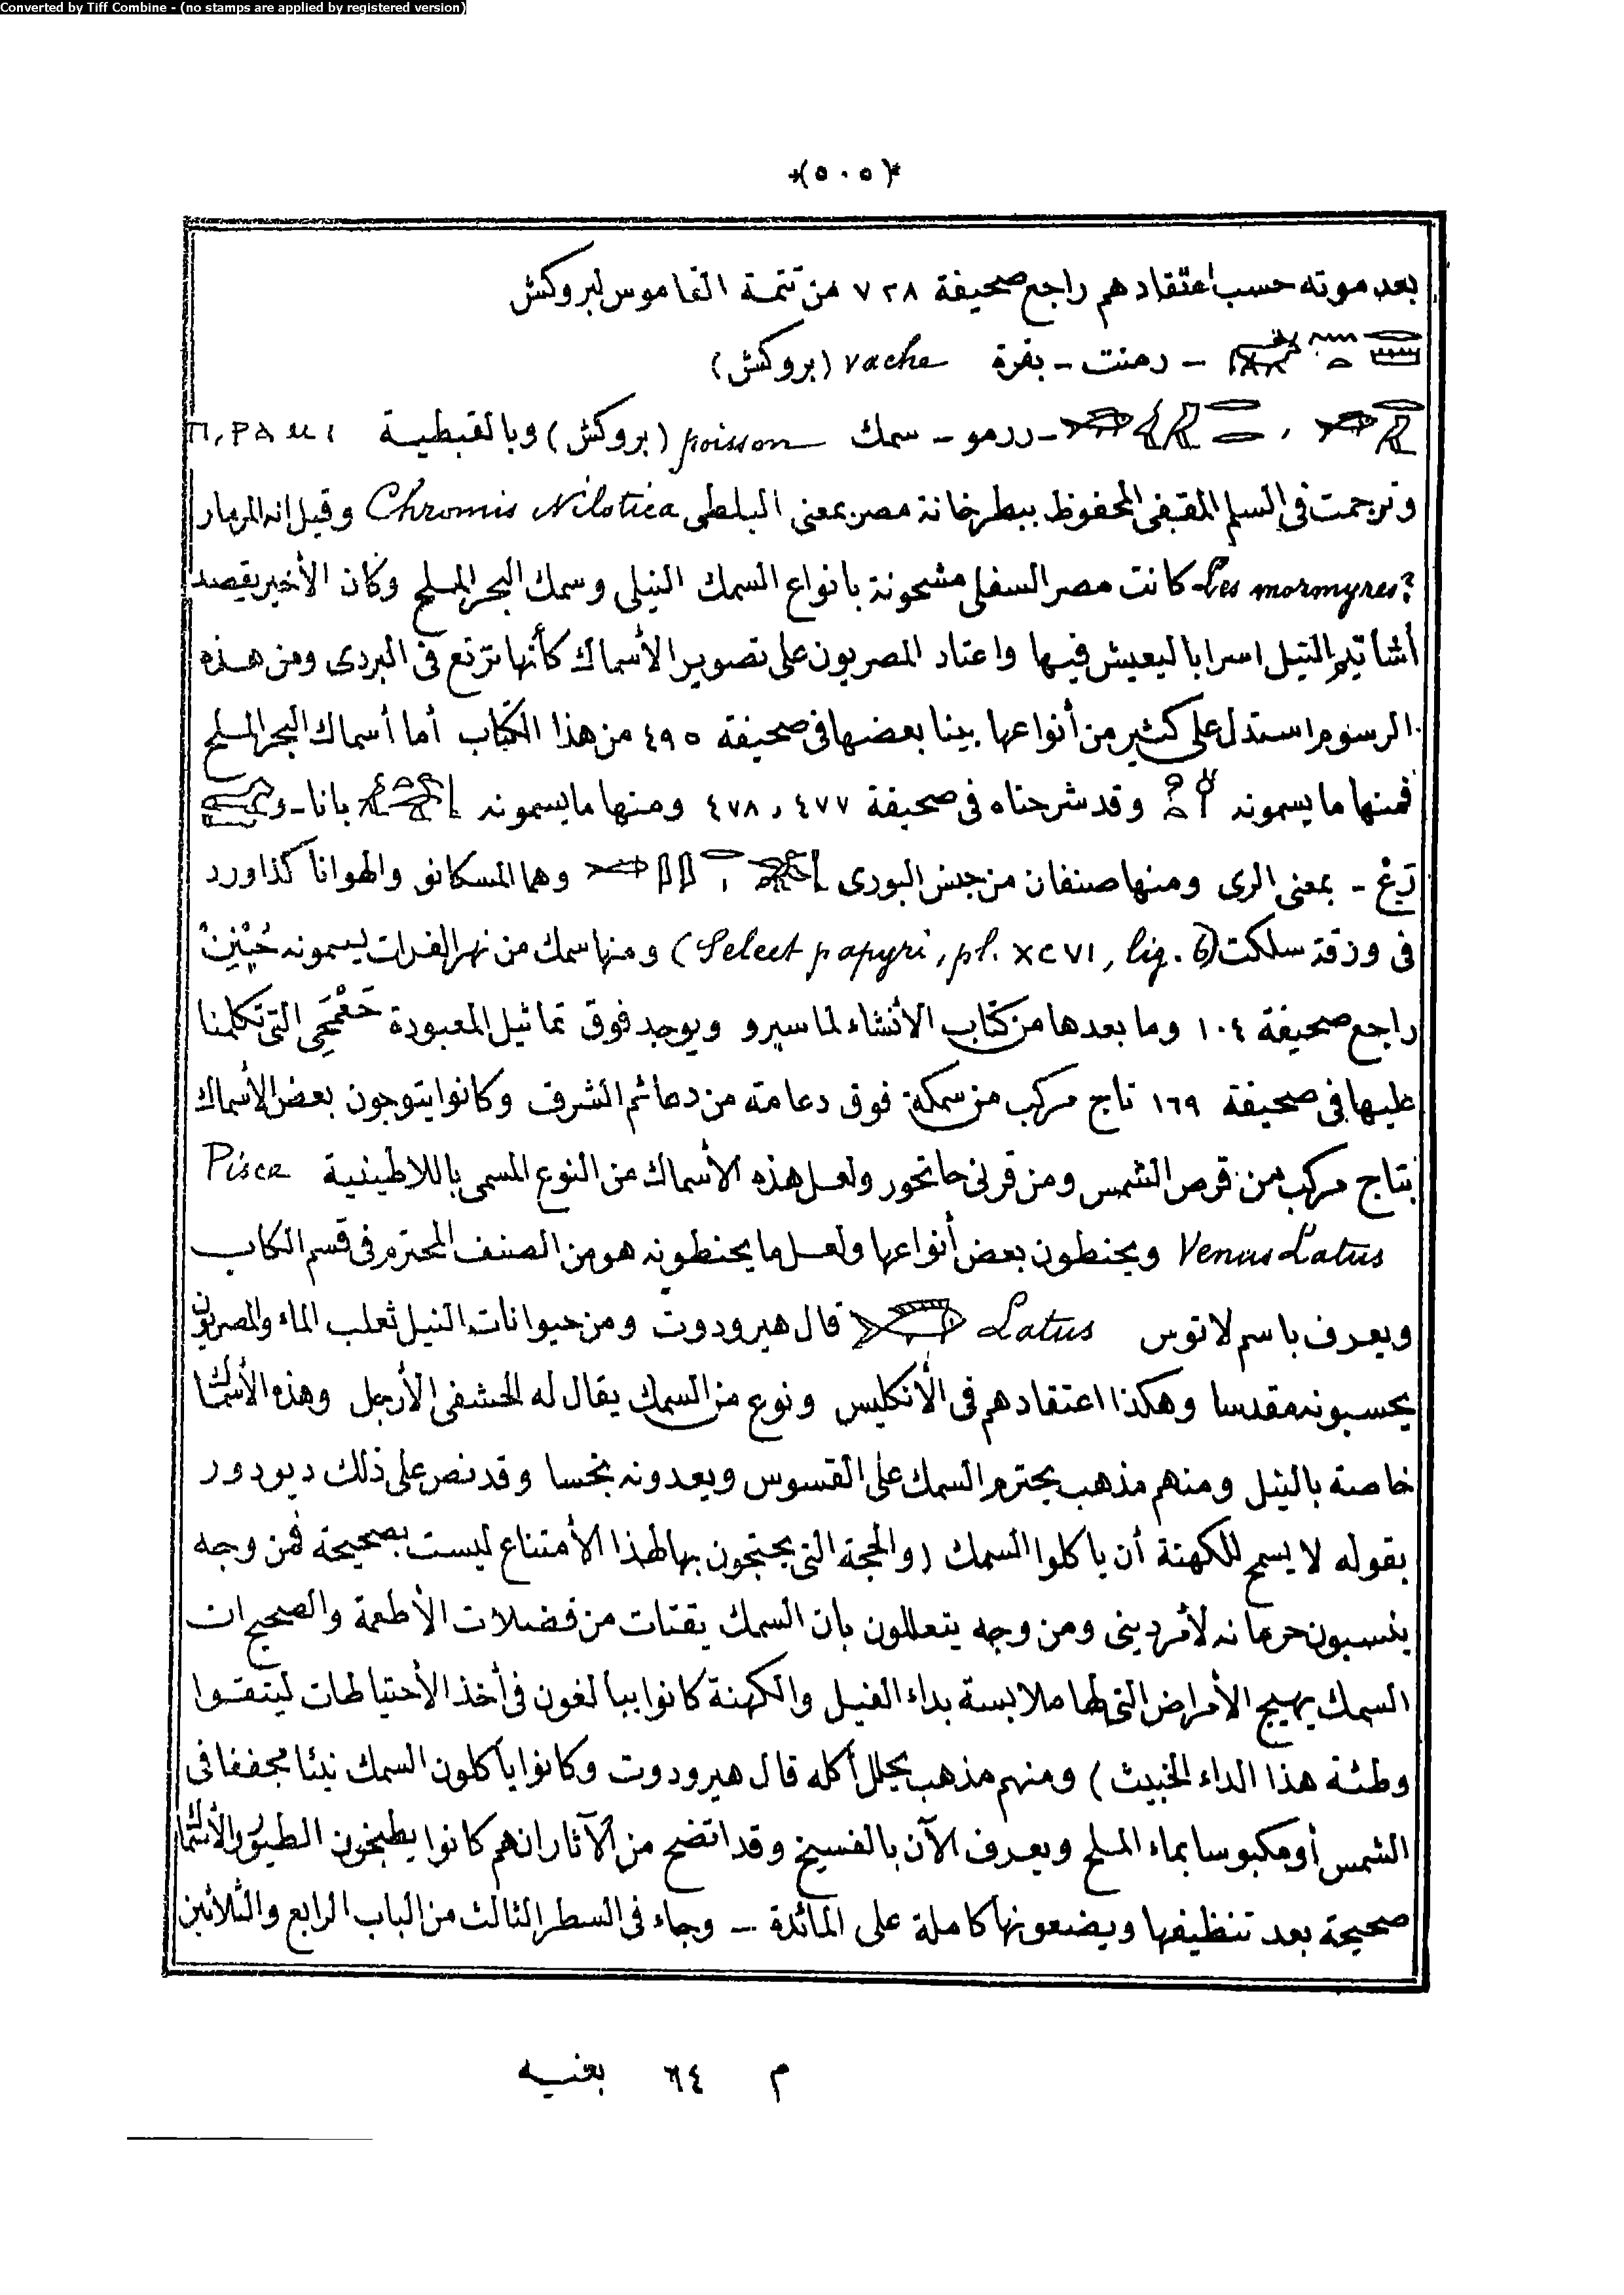 Converted by Tiff Combine - (no stamps are applied by registered version)
*(٥٠٥)*
بعد موته حسب اعتقادهم راجع صحيفة ٧٢٨ من تتمة القاموس لبروكش
- رمنت - بقرة vache (بروكش)
- ررمو - سمك poisson (بروكش) وبالقبطية ⲡ,ⲣⲁⲙⲓ
وترجمت فى السلم المقفى المحفوظ ببطرخانة مصر بمعنى البلطى Chromis Nilotica وقيل انه المرمار
Les mormyres? كانت مصر السفلى مشحونة بانواع السمك النيلى وسمك البحر الملح وكان الأخير يقصد
أشاتيم النيل اسرابا ليعيش فيها واعتاد المصريون على تصوير الأسماك كأنها ترتع فى البردى ومن هذه
الرسوم استدل على كثير من أنواعها بينا بعضها فى صحيفة ٤٩٥ من هذا الكتاب أما أسماك البحر الملح
فمنها ما يسمونه وقد شرحناه فى صحيفة ٤٧٧ , ٤٧٨ ومنها ما يسمونه بانا - و
رَعْ - بمعنى الرى ومنها صنفان من جنس البورى وهما المسكانو والهوانا كذا ورد
فى ورقة سلكت (Select papyri, pl. XCVI, lig. 6) ومنها سمك من نهر الفرات يسمونه
راجع صحيفة ١٠٤ وما بعدها من كتاب الأنشاء لماسپرو ويوجد فوق تماثيل المعبودة حَعْمَحِى التى تكلمنا
عليها فى صحيفة ١٦٩ تاج مركب من سمكة فوق دعامة من دعائم الشرف وكانوا يتوجون بعض الأسماك
بتاج مركب من قرص الشمس ومن قرنى حاتحور ولعل هذه الأسماك من النوع المسمى باللاطينية Pisce
Venus Latus ويحنطون بعض أنواعها ولعل ما يحنطونه هو من الصنف المحترم فى قسم الكاب
ويعرف باسم لاتوس Latus قال هيرودوت ومن حيوانات النيل ثعلب الماء والمصريون
يحسبونه مقدسا وهكذا اعتقادهم فى الأنكليس ونوع من السمك يقال له الحشفى الأرجل وهذه الأسماك
خاصة بالنيل ومنهم مذهب يحترم السمك على القسوس ويعدونه نجسا وقد نص على ذلك ديودور
بقوله لا يسمح للكهنة أن ياكلوا السمك (والحجة التى يحتجون بها لهذا الأمتناع ليست بصحيحة فمن وجه
ينسبون حرمانه لأمر دينى ومن وجه يتعللون بان السمك يقتات من فضلات الأطعمة والصحيح ان
السمك يهيج الأمراض التى لها ملابسة بداء الفيل والكهنة كانوا يبالغون فى أخذ الأحتياطات ليتقوا
وطئة هذا الداء الخبيث) ومنهم مذهب يحلل أكله قال هيرودوت وكانوا يأكلون السمك نيئا مجففا فى
الشمس أو مكبوسا بماء الملح ويعرف الآن بالفسيخ وقد اتضح من الآثار انهم كانوا يطبخون الطيور والأسماك
صحيحة بعد تنظيفها ويضعونها كاملة على المائدة - وجاء فى السطر الثالث من الباب الرابع والثلاثين
م ٦٤ بغيه